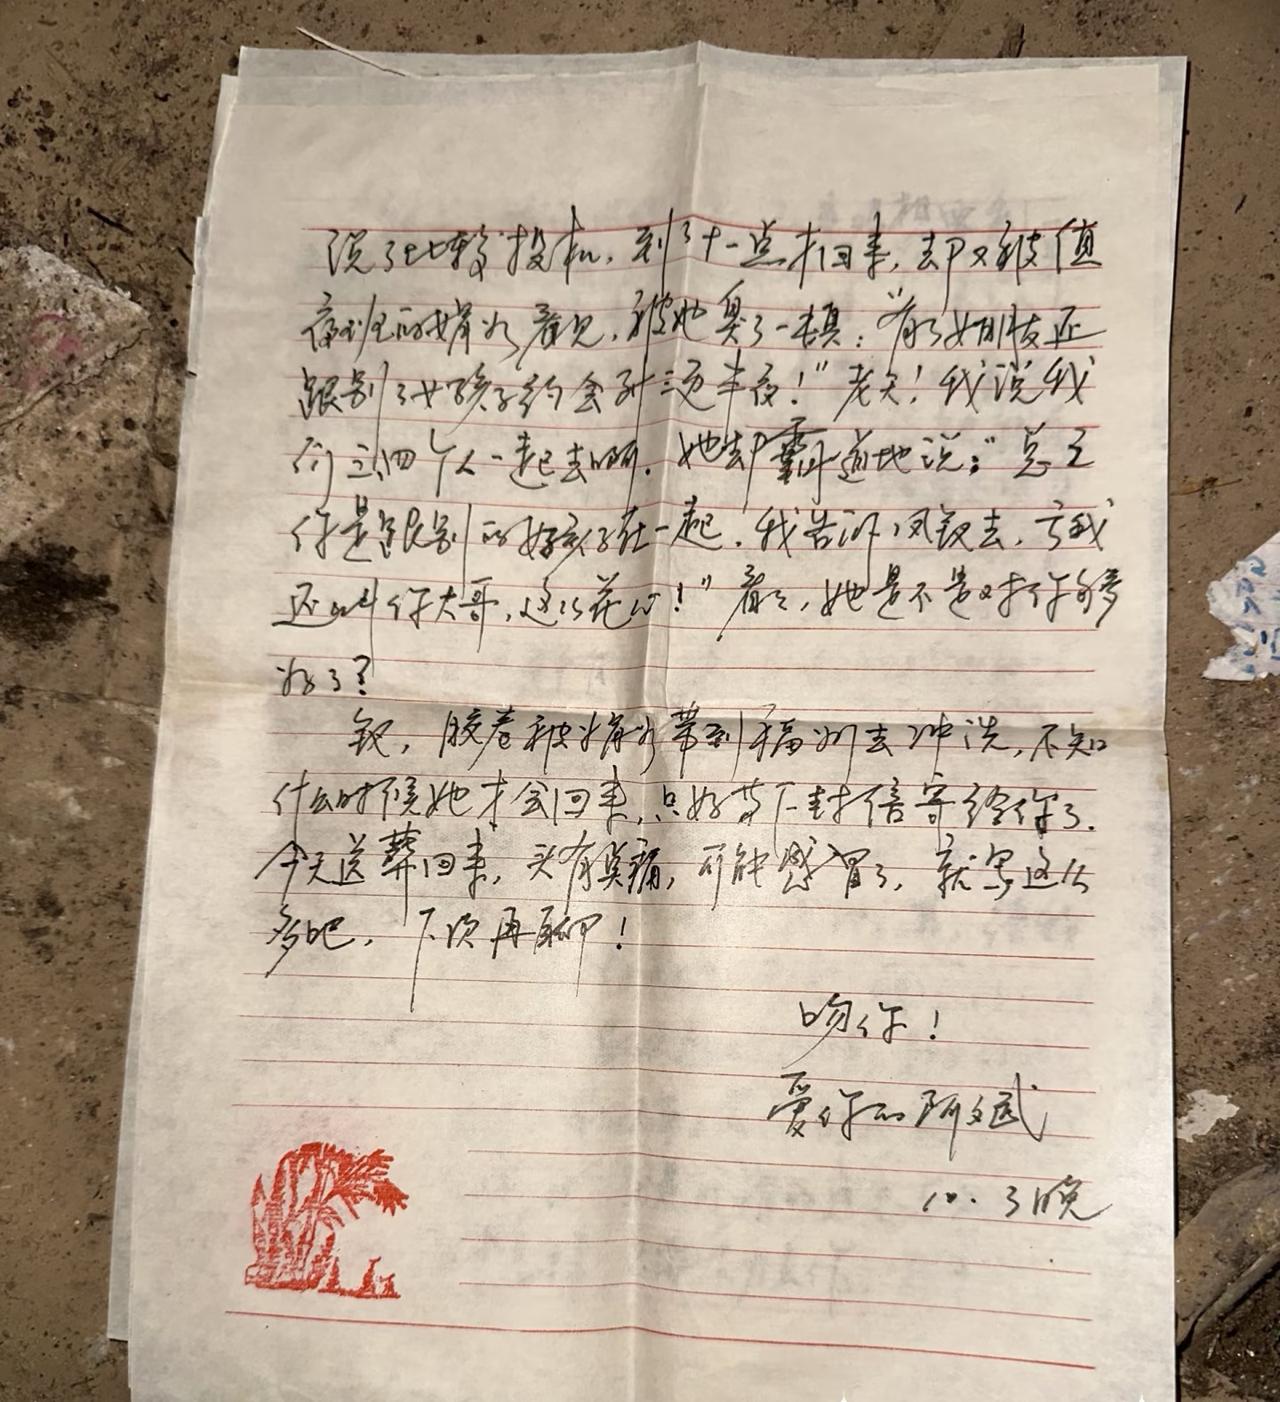 说了比较投机，到了十一点才回来，却又被值
夜班的婧水看见，被她臭了一顿：“有了女朋友还
跟别的女孩子约会到三更半夜！”老天！我说我
们三四个人一起去啊，她却霸道地说：“总之
你是跟别的女孩子在一起，我告诉凤钗去，亏我
还叫你大哥，这么花心！”看看，她是不是对你够
好了？
钗，胶卷被婧水带到福州去冲洗，不知
什么时候她才会回来，只好等下封信寄给你了。
今天送葬回来，头有点痛，可能感冒了，就写这么
多吧，下次再聊！
吻你！
爱你的阿文武
10.3晚